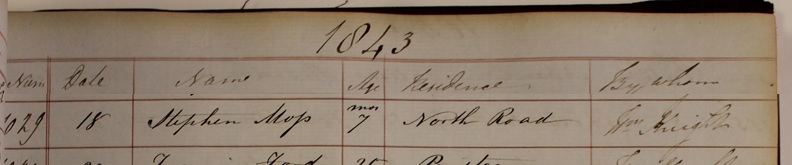 1843
Num Date Name Age Residence By whom
1029 18 Stephen Mops mos 7 North Road Wm Knight